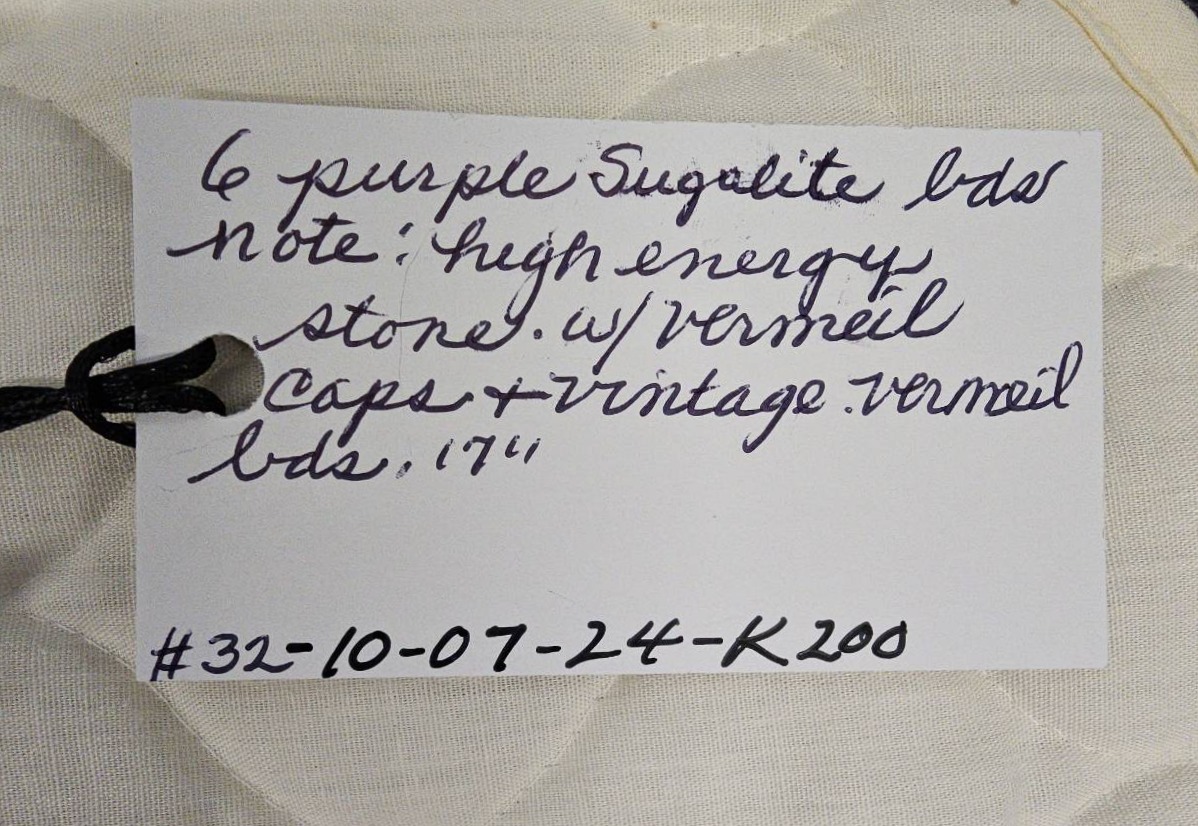 6 purple Sugalite bds
Note: high energy
stone. w/ vermeil
caps + vintage vermeil
bds. 17"
#32-10-07-24-K200